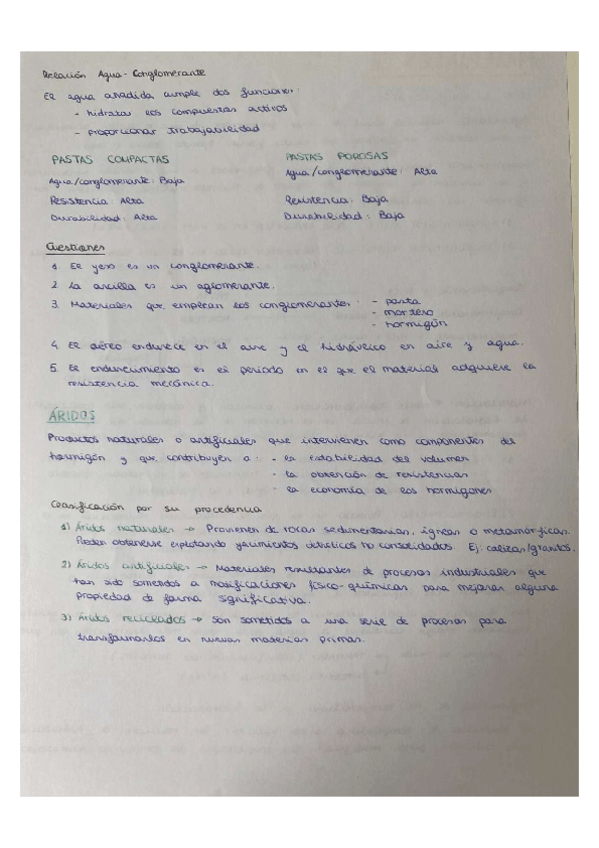 Relación Agua-Conglomerante
El agua añadida cumple dos funciones:
- hidratar los compuestos activos
- proporcionar trabajabilidad
PASTAS COMPACTAS
Agua/conglomerante: Baja
Resistencia: Alta
Durabilidad: Alta
PASTAS POROSAS
Agua/conglomerante: Alta
Resistencia: Baja
Durabilidad: Baja
Cuestiones
1. El yeso es un conglomerante.
2. La arcilla es un aglomerante.
3. Materiales que emplean los conglomerantes: - pasta
- mortero
- hormigón
4. El aéreo endurece en el aire y el hidráulico en aire y agua.
5. El endurecimiento es el periodo en el que el material adquiere la
resistencia mecánica.
ÁRIDOS
Productos naturales o artificiales que intervienen como componentes del
hormigón y que contribuyen a: - la estabilidad del volumen
- la obtención de resistencias
- la economía de los hormigones
Clasificación por su procedencia
1) Áridos naturales → Provienen de rocas sedimentarias, ígneas o metamórficas.
Pueden obtenerse explotando yacimientos detríticos no consolidados. Ej: calizas/granitos.
2) Áridos artificiales → Materiales resultantes de procesos industriales que
han sido sometidos a modificaciones físico-químicas para mejorar alguna
propiedad de forma significativa.
3) Áridos reciclados → Son sometidos a una serie de procesos para
transformarlos en nuevas materias primas.